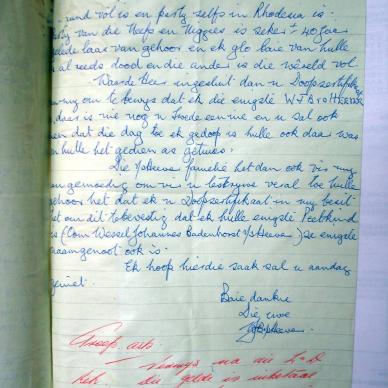 rund vol is en party selfs in Rhodesia is.
van die Neefs en Niggies is seker + 40 jaar
laas van gehoor en ek glo baie van hulle
al reeds dood en die ander is die wêreld vol.
Waarde Heer ingesluit dan 'n Doopsertifikaat
my om te bewys dat ek die enigste
daar is nie nog 'n tweede een nie en u sal ook
dat die dag toe ek gedoop is hulle ook daar was
hulle het geteken as getuies.
Die familie het dan ook vir my
gemoedig om vir u te skrywe veral toe hulle
gehoor het dat ek 'n Doopsertifikaat in my besit
het om dit te bevestig dat ek hulle enigste Peetkind
is (Oom Wessel Johannes Badenhorst ) se enigste
naamgenoot ook is.
Ek hoop hierdie saak sal u aandag
geniet.
Baie dankie
Die uwe
na die
die gelde is inbetaal